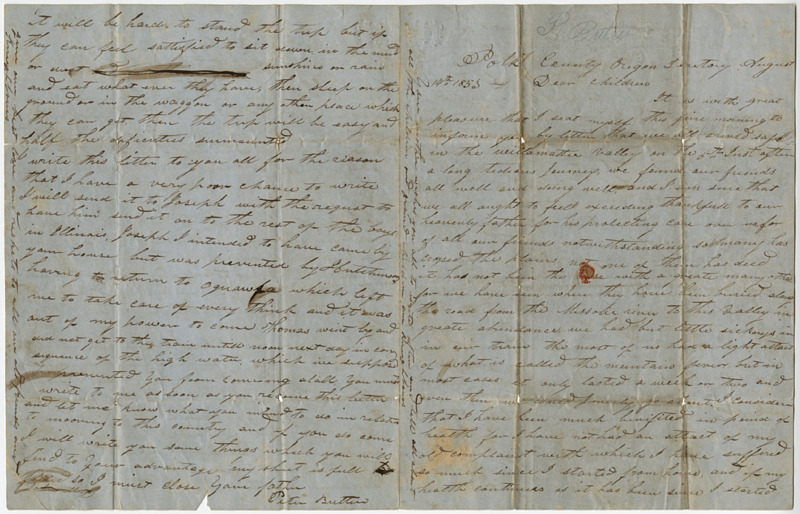 P. Butler
Polk County Origon Teretory August
14th 1853
Dear Children
It is with great
pleasure that I seat myself this fine morning to
informe you by letter that we all arived safe
in the Willamatta Valley on the 5th Inst after
a long tedious journey, we found our friends
all well and doing well and I am sure that
we all ought to feel exceeding thankfull to our
heavenly father for his protecting care over us for
of all our friends notwithstanding so many has
crossed the plains, not one of them has died
it has not bin the case with a great many others
for we have seen where they have bin buried along
the road from the Missorie river to this Valley in
great abundance we had but little sickness in
in our train the most of us had a light attact
of what is called the mountain fever but in
most cases it only lasted a week or two and
even then we used I consider
that I have been much benifited in point of
health for I have not had an attact of my
old complaint with which I have suffered
so much since I started from home, and if my
health continues as it has been since I started
it will be hard to stand the trip but if
they can feel sattisfied to sit down in the mud
or dust sunshine or rain
and eat what ever they have, then sleep on the
ground or in the waggon or any other place which
they can get then the trip will be easy and
half the dificulties surmounted
I write this letter to you all for the reason
that I have a very poor chance to write
I will send it to Joseph with the request to
have him send it on to the rest of the boys
in Illinois, Joseph I intended to have came by
your house but was prevented by Hutchinson
having to return to Oquawka which left
me to take care of every thing and it was
out of my power to come Thomas went by and
did not get to the train untill noon next day in con
sequence of the high water, which we suppose
prevented you from comeing atall You must
write to me as soon as you receive this letter
and let me know what you intend to do in relation
to comeing to this country and if you do come
I will write you some things which you will
find to your advantage my sheet is full
and so I must close Your father
Peter Butler